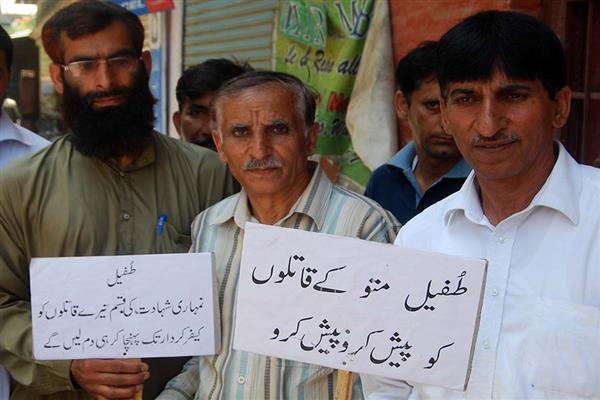 طُفیل
تمہاری شہادت کی قسم تیرے قاتلوں کو
کیفر کردار تک پہنچا کر ہی دم لیں گے
طُفیل متو کے قاتلوں
کو پیش کرو پیش کرو